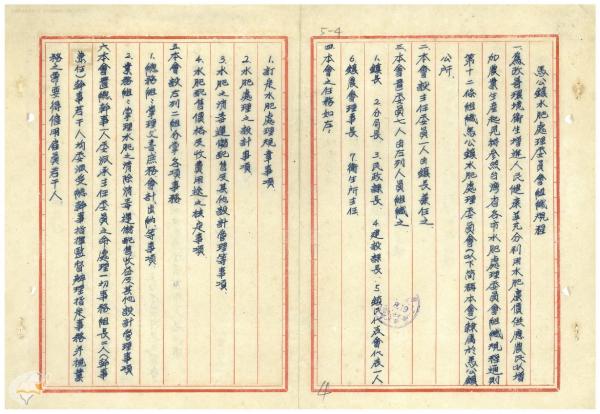 5-4
馬公鎮水肥處理委員會組織規程
一、為改善環境衛生增進人民健康並充分利用水肥廉價供應農民以增
加農業生產起見特參照台灣省各市水肥處理委員會組織規程通則
第十二條組織馬公鎮水肥處理委員會（以下簡稱本會）隸屬於馬公鎮
公所。
二本會設主任委員一人由鎮長兼任之
三本會置委員七人由左列人員組織之
1.鎮長 2.分局長 3.民政課長 4.建設課長 5.鎮民代表會代表一人
6.鎮農會理事長 7.衛生所主任
四本會之任務如左：
1.訂定水肥處理規章事項
2.水肥處理之設計事項
3.水肥之清苦運儲配售及其他設計管理等事項
4.水肥配售價格及收費用途之核定事項
五本會設左列二組分掌各項事務
1.總務組：掌理文書庶務會計出納等事項
2.業務組：掌理水肥之清除消毒運儲配售收益及其他設計管理事項
六本會置總幹事一人委派承主任委員之命處理一切事務組長二人（幹事
兼任）幹事若干人均委派受總幹事指揮監督辦理指定事務並視業
務之需要得僱用僱員若干人。
4